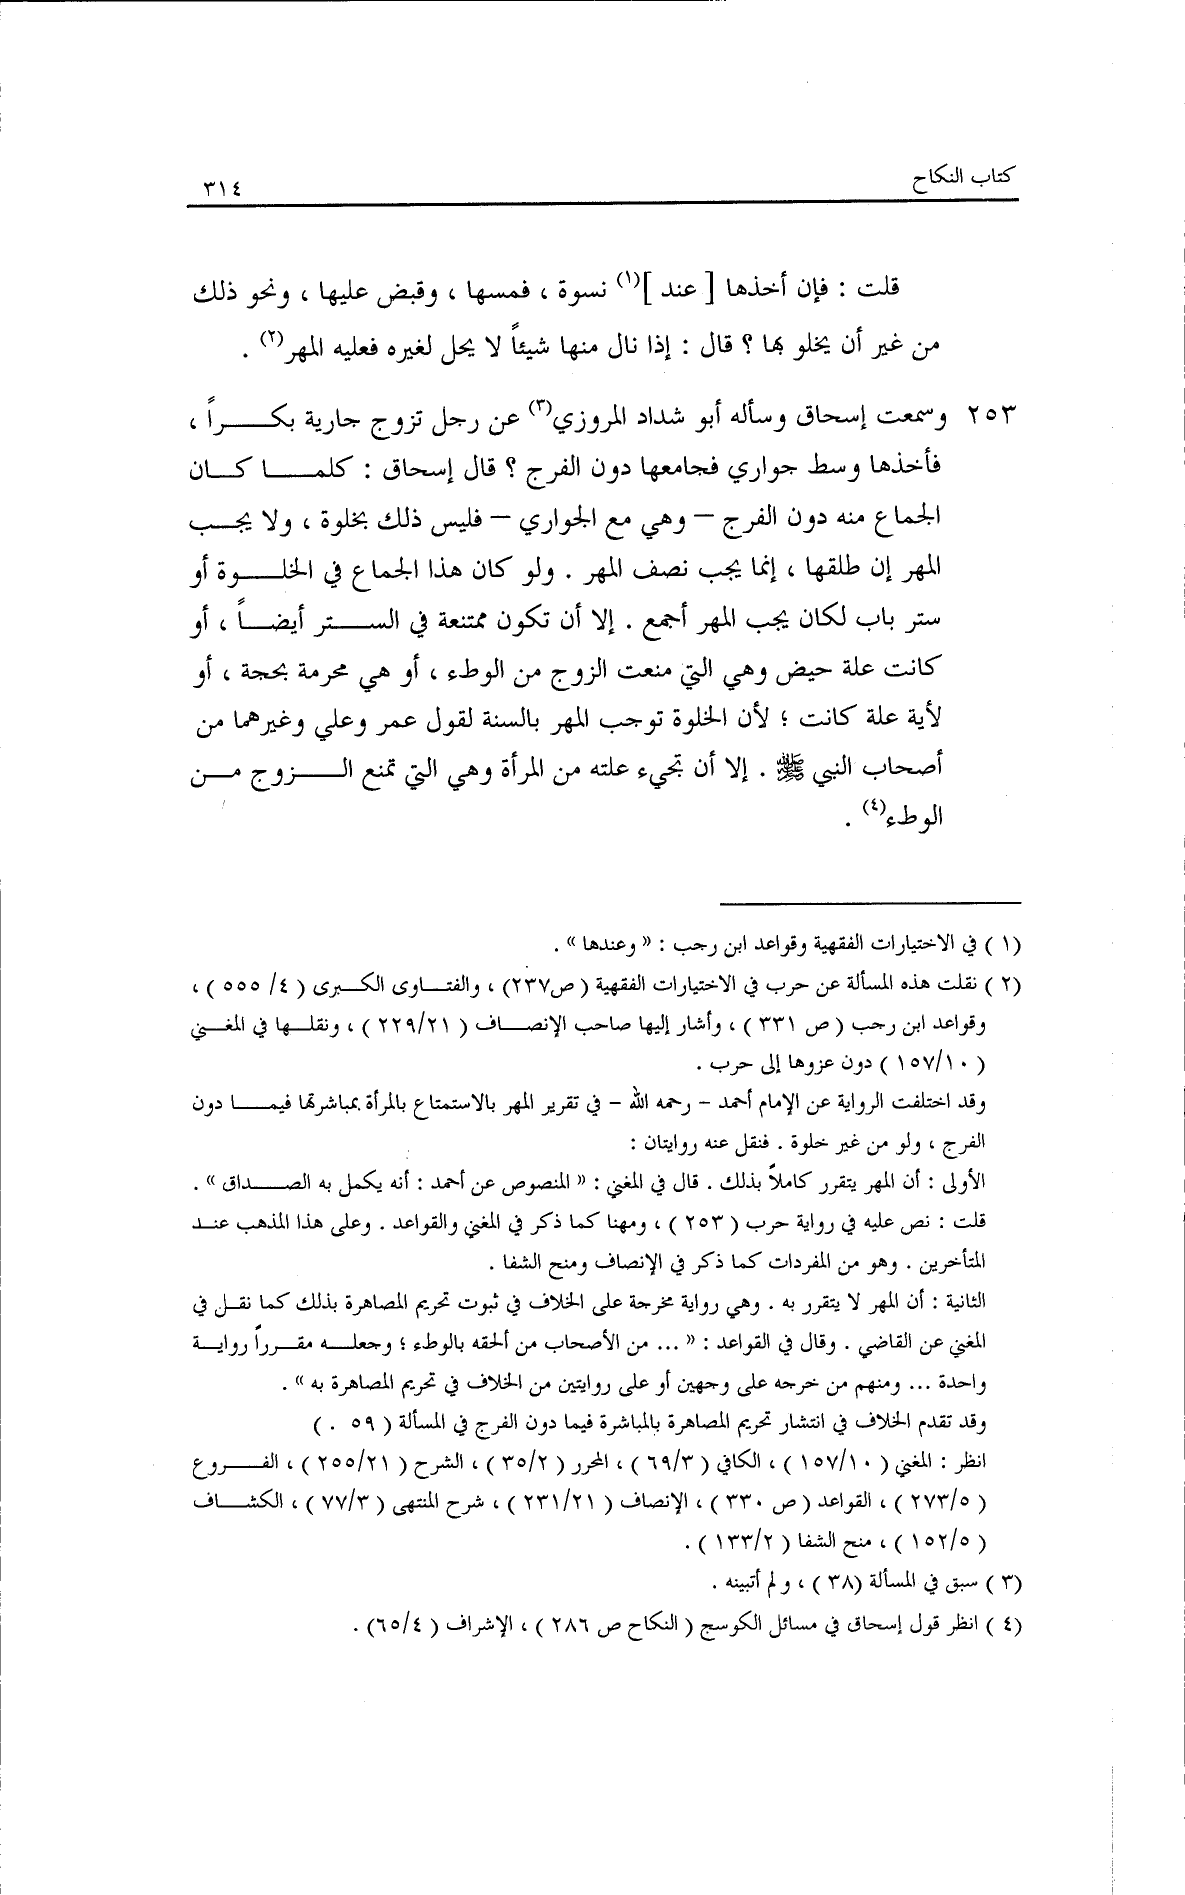 كتاب النكاح
٣١٤
قلت : فإن أخذها [ عند ](١) نسوة ، فمسها ، وقبض عليها ، ونحو ذلك
من غير أن يخلو بها ؟ قال : إذا نال منها شيئاً لا يحل لغيره فعليه المهر(٢) .
٢٥٣ وسمعت إسحاق وسأله أبو شداد المروزي(٣) عن رجل تزوج جارية بكـــراً ،
فأخذها وسط جواري فجامعها دون الفرج ؟ قال إسحاق : كلمـــا كـان
الجماع منه دون الفرج – وهي مع الجواري – فليس ذلك بخلوة ، ولا يجـب
المهر إن طلقها ، إنما يجب نصف المهر . ولو كان هذا الجماع في الخلـــوة أو
ستر باب لكان يجب المهر أجمع . إلا أن تكون ممتنعة في الســـتر أيضـاً ، أو
كانت علة حيض وهي التي منعت الزوج من الوطء ، أو هي محرمة بحجة ، أو
لأية علة كانت ؛ لأن الخلوة توجب المهر بالسنة لقول عمر وعلي وغيرهما من
أصحاب النبي ﷺ . إلا أن تجيء علته من المرأة وهي التي تمنع الـــزوج مــن
الوطء(٤) .
(١) في الاختيارات الفقهية وقواعد ابن رجب : « وعندها » .
(٢) نقلت هذه المسألة عن حرب في الاختيارات الفقهية ( ص٢٣٧) ، والفتـاوى الكـبرى ( ٤/ ٥٥٥ ) ،
وقواعد ابن رجب ( ص ٣٣١ ) ، وأشار إليها صاحب الإنصـاف ( ٢٢٩/٢١ ) ، ونقلـها في المغـني
( ١٥٧/١٠ ) دون عزوها إلى حرب .
وقد اختلفت الرواية عن الإمام أحمد – رحمه الله – في تقرير المهر بالاستمتاع بالمرأة بمباشرتها فيمـــا دون
الفرج ، ولو من غير خلوة . فنقل عنه روايتان :
الأولى : أن المهر يتقرر كاملاً بذلك . قال في المغني : « المنصوص عن أحمد : أنه يكمل به الصـــداق » .
قلت : نص عليه في رواية حرب ( ٢٥٣ ) ، ومهنا كما ذكر في المغني والقواعد . وعلى هذا المذهب عنـد
المتأخرين . وهو من المفردات كما ذكر في الإنصاف ومنح الشفا .
الثانية : أن المهر لا يتقرر به . وهي رواية مخرجة على الخلاف في ثبوت تحريم المصاهرة بذلك كما نقـل في
المغني عن القاضي . وقال في القواعد : « ... من الأصحاب من ألحقه بالوطء ؛ وجعلـه مقـرراً روايـة
واحدة ... ومنهم من خرجه على وجهين أو على روايتين من الخلاف في تحريم المصاهرة به » .
وقد تقدم الخلاف في انتشار تحريم المصاهرة بالمباشرة فيما دون الفرج في المسألة ( ٥٩ . )
انظر : المغني ( ١٥٧/١٠ ) ، الكافي ( ٦٩/٣ ) ، المحرر ( ٣٥/٢ ) ، الشرح ( ٢٥٥/٢١ ) ، الفـــروع
( ٢٧٣/٥ ) ، القواعد ( ص ٣٣٠ ) ، الإنصاف ( ٢٣١/٢١ ) ، شرح المنتهى ( ٧٧/٣ ) ، الكشـاف
( ١٥٢/٥ ) ، منح الشفا ( ١٣٣/٢ ) .
(٣) سبق في المسألة (٣٨ ) ، ولم أتبينه .
(٤) انظر قول إسحاق في مسائل الكوسج ( النكاح ص ٢٨٦ ) ، الإشراف ( ٦٥/٤) .